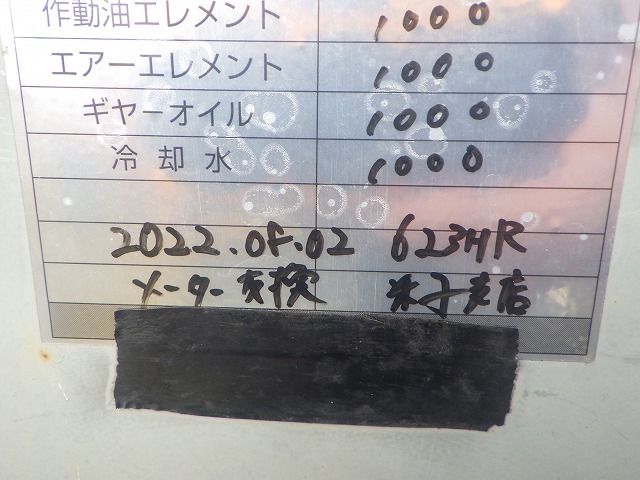 作動油エレメント 1000
エアーエレメント 1000
ギヤーオイル 1000
冷却水 1000
2022.08.02 623HR
メーター交換 米子支店